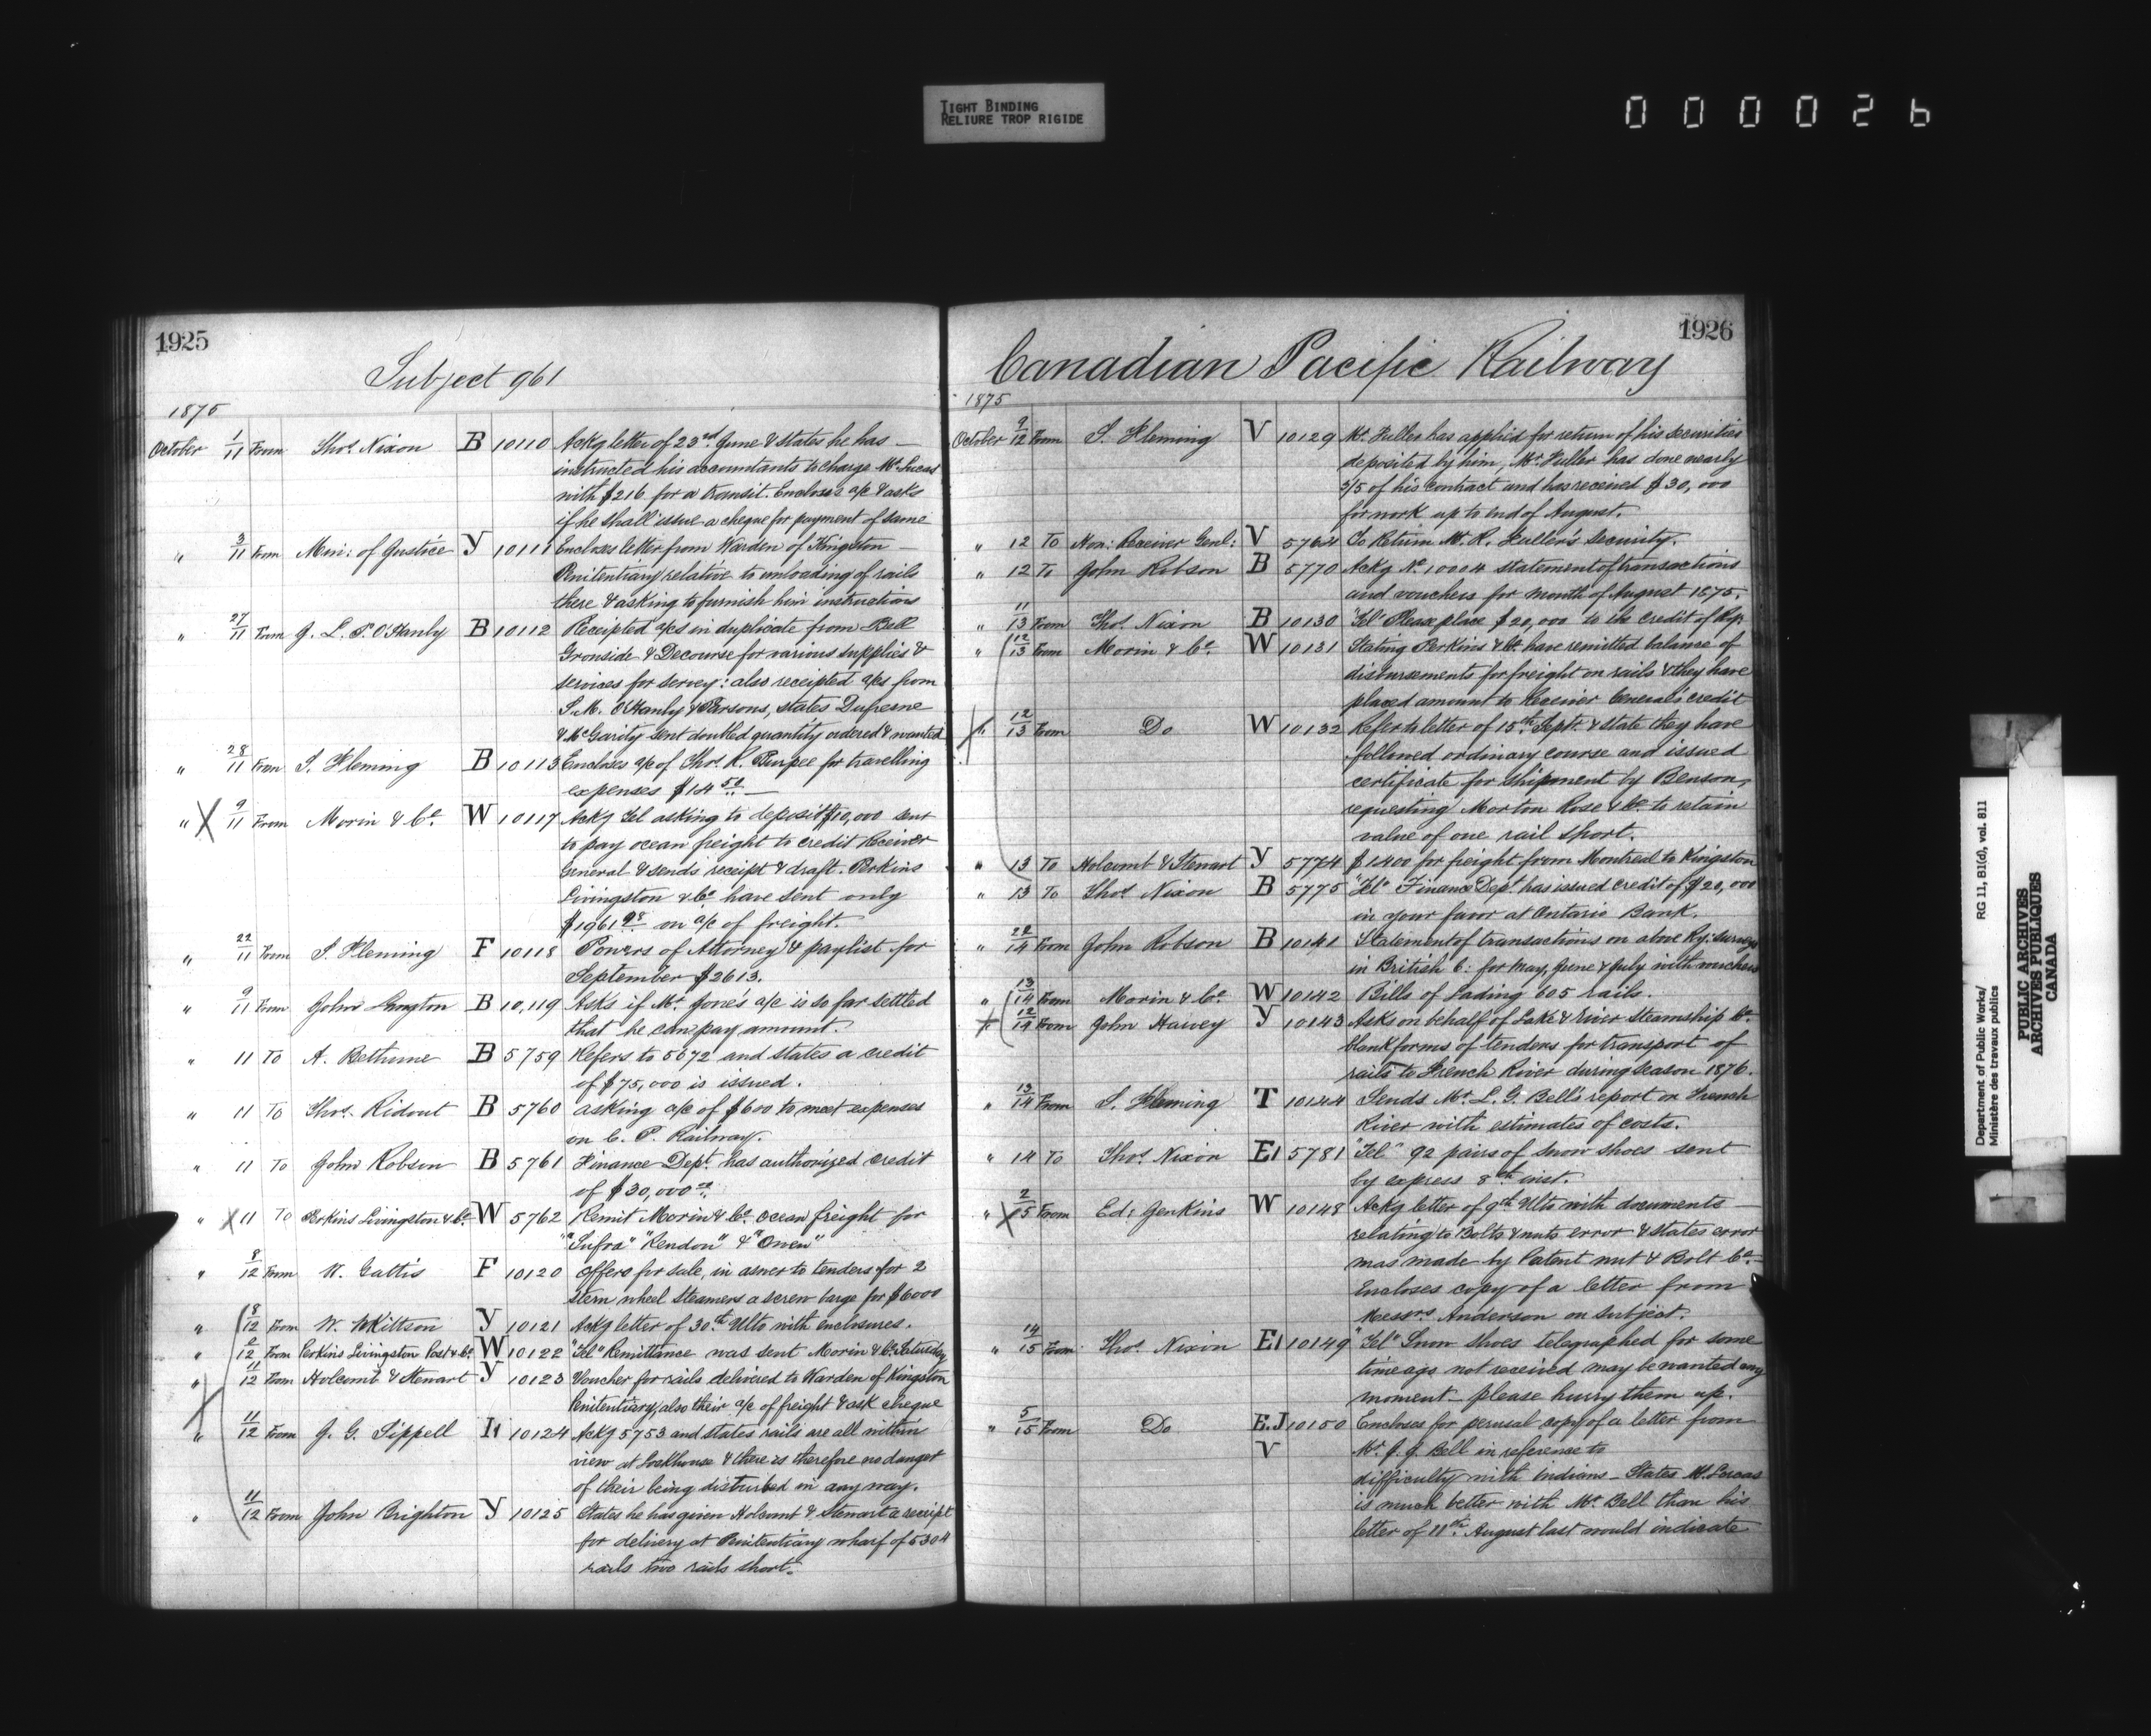 TIGHT BINDING
RELIURE TROP RIGIDE
000026
1925
Subject 961
1875
October 1/11 From Thos. Nixon B 10110 Ackg letter of 23rd June & states he has —
instructed his accountants to charge Mr. Lucas
with $216 for a transit. Encloses a/c & asks
if he shall issue a cheque for payment of same
" 3/11 From Min: of Justice Y 10111 Encloses letter from Warden of Kingston —
Penitentiary relative to unloading of rails
there & asking to furnish him instructions
" 27/11 From J. L. P. O'Hanly B 10112 Receipted a/cs in duplicate from Bell
Gronside & Decourse for various supplies &
services for servey: also receipted a/cs from
S. M. O'Hanly & Parsons, states Dufresne
& McGarity sent doubled quantity ordered & wanted
" 28/11 From S. Fleming B 10113 Encloses a/c of Thos. R. Burpee for travelling
expenses $14 50 —
" X 9/11 From Morin & Co. W 10117 Ackg Tel asking to deposit $10,000 sent
to pay ocean freight to credit Receiver
General & sends receipt & draft. Perkins
Livingston & Co. have sent only
$1961 98 on a/c of freight.
" 22/11 From S. Fleming F 10118 Powers of Attorney & paylist for
September $2613.
" 9/11 From John Langton B 10,119 Asks if Mr. Jone's a/c is so far settled
that he can pay amount.
" 11 To A. Bethune B 5759 Refers to 5672 and states a credit
of $75,000 is issued.
" 11 To Thos. Ridout B 5760 asking a/c of $600 to meet expenses
on C. P. Railway.
" 11 To John Robson B 5761 Finance Dept. has authorized credit
of $30,000 00.
" X 11 To Perkins Livingston & Co. W 5762 Remit Morin & Co. ocean freight for
"Sufra" "Rendon" & "Owen"
" 8/12 From W. Gattis F 10120 Offers for sale, in aswer to tenders for 2
stern wheel steamers a screw large for $6000
" 8/12 From W. Kittson Y 10121 Ackg letter of 30th Ulto with enclosures.
" 2/12 From Perkins Livingston Post & Co. W 10122 "Tel" Remittance was sent Morin & Co. Saturday
" 11/12 From Holcomb & Stewart Y 10123 Voucher for rails delivered to Warden of Kingston
Penitentiary, also their a/c of freight & ask cheque
X " 11/12 From J. G. Sippell 10124 Ackg 5753 and states rails are all within
view at Lockhouse & there is therefore no danger
of their being disturbed in any way.
" 11/12 From John Brighton Y 10125 States he has given Holcomb & Stewart a receipt
for delivery at Penitentiary wharf of 5304
rails two rails short.
1926
Canadian Pacific Railway
1875
October 9/12 From S. Fleming V 10129 Mr. Fuller has applied for return of his securities
deposited by him, Mr. Fuller has done nearly
3/5 of his contract and has received $30,000
for work up to end of August.
" 12 To Hon: Receiver Genl: V 5764 To Return Mr. R. Fuller's Security.
" 12 To John Robson B 5770 Ackg No. 10004 statement of transactions
and vouchers for month of August 1875.
" 11/13 From Thos. Nixon B 10130 "Tel" Please place $20,000 to the credit of Ry.
" 12/13 From Morin & Co. W 10131 Stating Perkins & Co. have remitted balance of
disbursements for freight on rails & they have
placed amount to Receiver General's credit
X " 12/13 From Do W 10132 Refer to letter of 15th Sept. & state they have
followed ordinary course and issued
certificate for shipment by Benson,
requesting Morton Rose & Co to retain
value of one rail short.
" 13 To Holcomb & Stewart Y 5774 $1400 for freight from Montreal to Kingston
" 13 To Thos. Nixon B 5775 "Tel" Finance Dept has issued credit of $20,000
in your favor at Ontario Bank.
" 22/14 From John Robson B 10141 Statement of transactions on above Ry: surveys
in British C: for May, June & July with vuchers
" 13/14 From Morin & Co. W 10142 Bills of Lading 605 rails.
X " 12/14 From John Harvey Y 10143 Asks on behalf of Lake & River Steamship Co.
blank forms of tenders for transport of
rails to French River during season 1876.
" 13/14 From S. Fleming T 10144 Sends Mr. L. G. Bell's report on French
River with estimates of costs.
" 14 To Thos. Nixon E1 5781 "Tel" 92 pairs of Snow shoes sent
by express 8th inst.
" X 2/15 From Ed: Jenkins W 10148 Ackg letter of 9th Ulto with documents —
relating to Bolts & nuts error & states error
was made by Patent nut & Bolt Co. —
Encloses copy of a letter from
Messrs Anderson on subject.
" 14/15 From Thos. Nixon E1 10149 "Tel" Snow shoes telegraphed for some
time ago not received may be wanted any
moment — please hurry them up.
" 5/15 From Do E.J 10150 Encloses for perusal copy of a letter from
V Mr. J. J. Bell in reference to
difficulty with Indians — States Mr. Lucas
is much better with Mr Bell than his
letter of 11th August last would indicate
Department of Public Works/
Ministère des travaux publics
RG 11, B1(d), vol. 811
PUBLIC ARCHIVES
ARCHIVES PUBLIQUES
CANADA